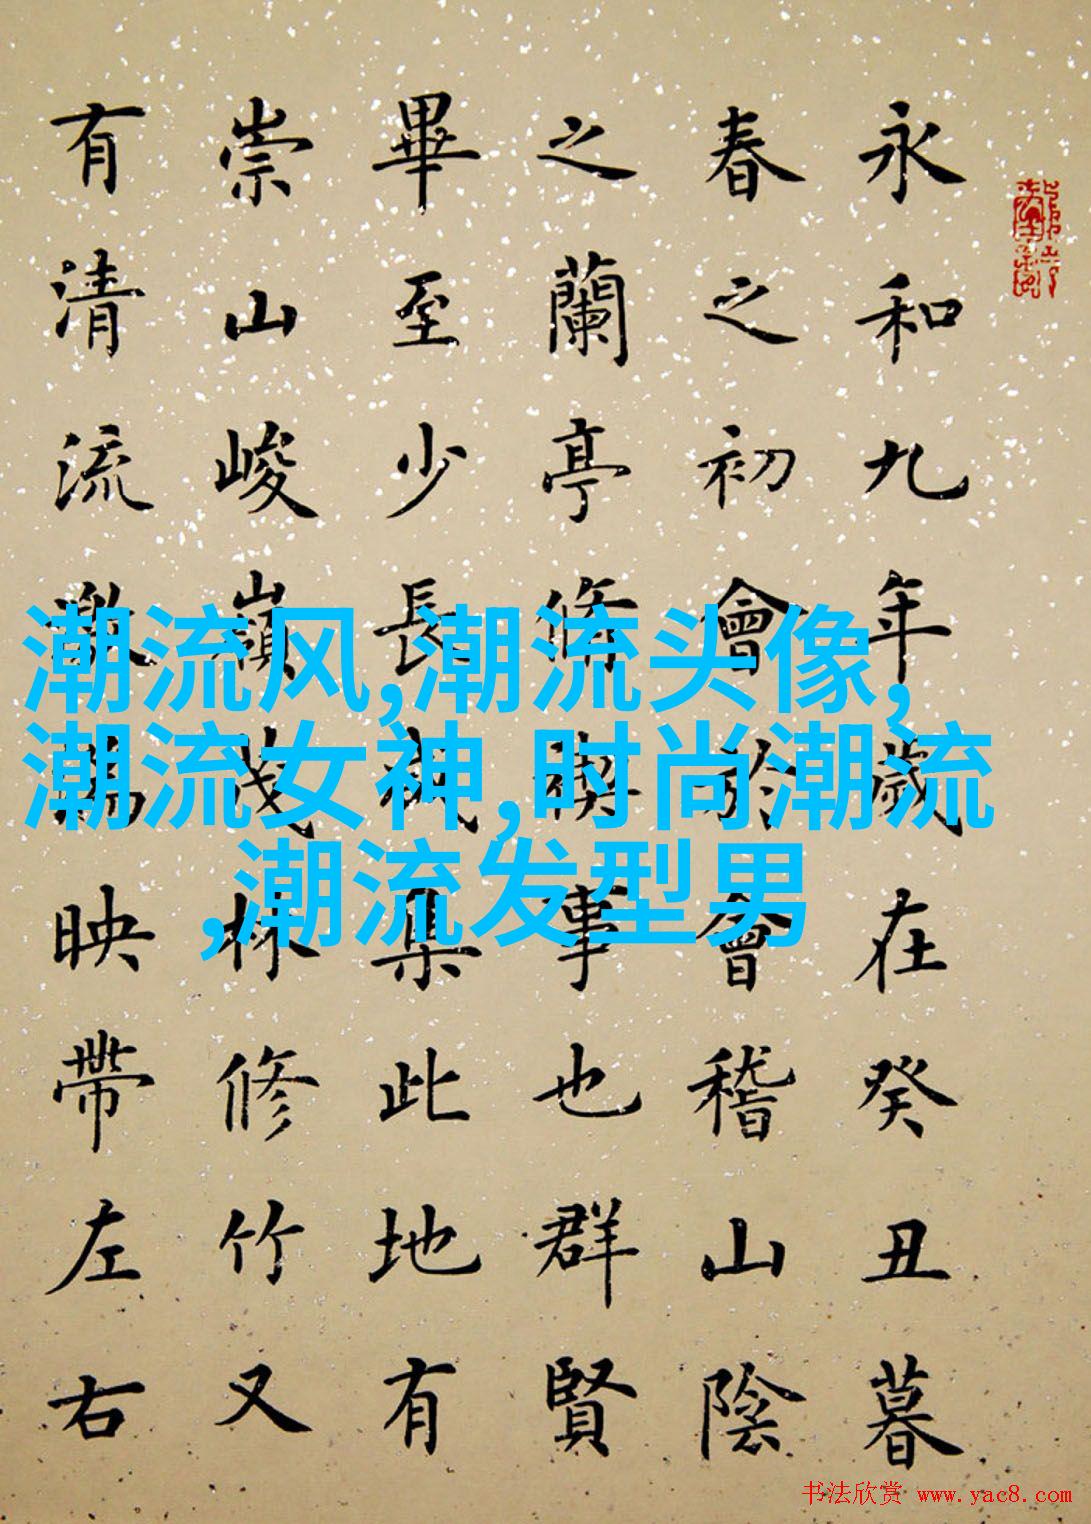 永和九年歲在癸丑暮
春之初會於會稽山陰
之蘭亭脩禊事也群賢
畢至少長咸集此地有
崇山峻嶺茂林修竹又
有清流激湍映帶左右
潮流风,潮流头像,
潮流女神,时尚潮流
,潮流发型男
书法欣赏 www.yac8.com